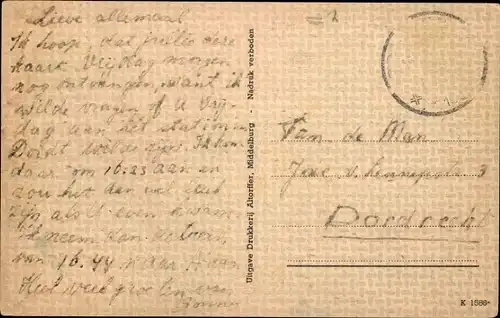 Lieve allemaal
Ik hoop, dat jullie deze
kaart Vrijdag morgen
nog ontvangen, want ik
wilde vragen of U Vrij-
dag aan het station
Dordt wilde zijn. Ik kom
daar om 16.23 aan en
zou het dan wel leuk
zijn als U even kwam.
Ik neem dan de trein
van 16.44 naar
Heel veel groeten van
Uitgave Drukkerij Altorffer, Middelburg - Nadruk verboden
Fam. de Man
3
Dordrecht
K 1586*